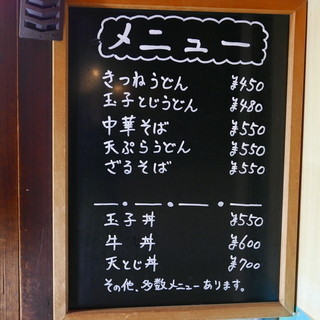 メニュー
きつねうどん ¥450
玉子とじうどん ¥480
中華そば ¥550
天ぷらうどん ¥550
ざるそば ¥550
玉子丼 ¥550
牛丼 ¥600
天とじ丼 ¥700
その他、多数メニューあります。